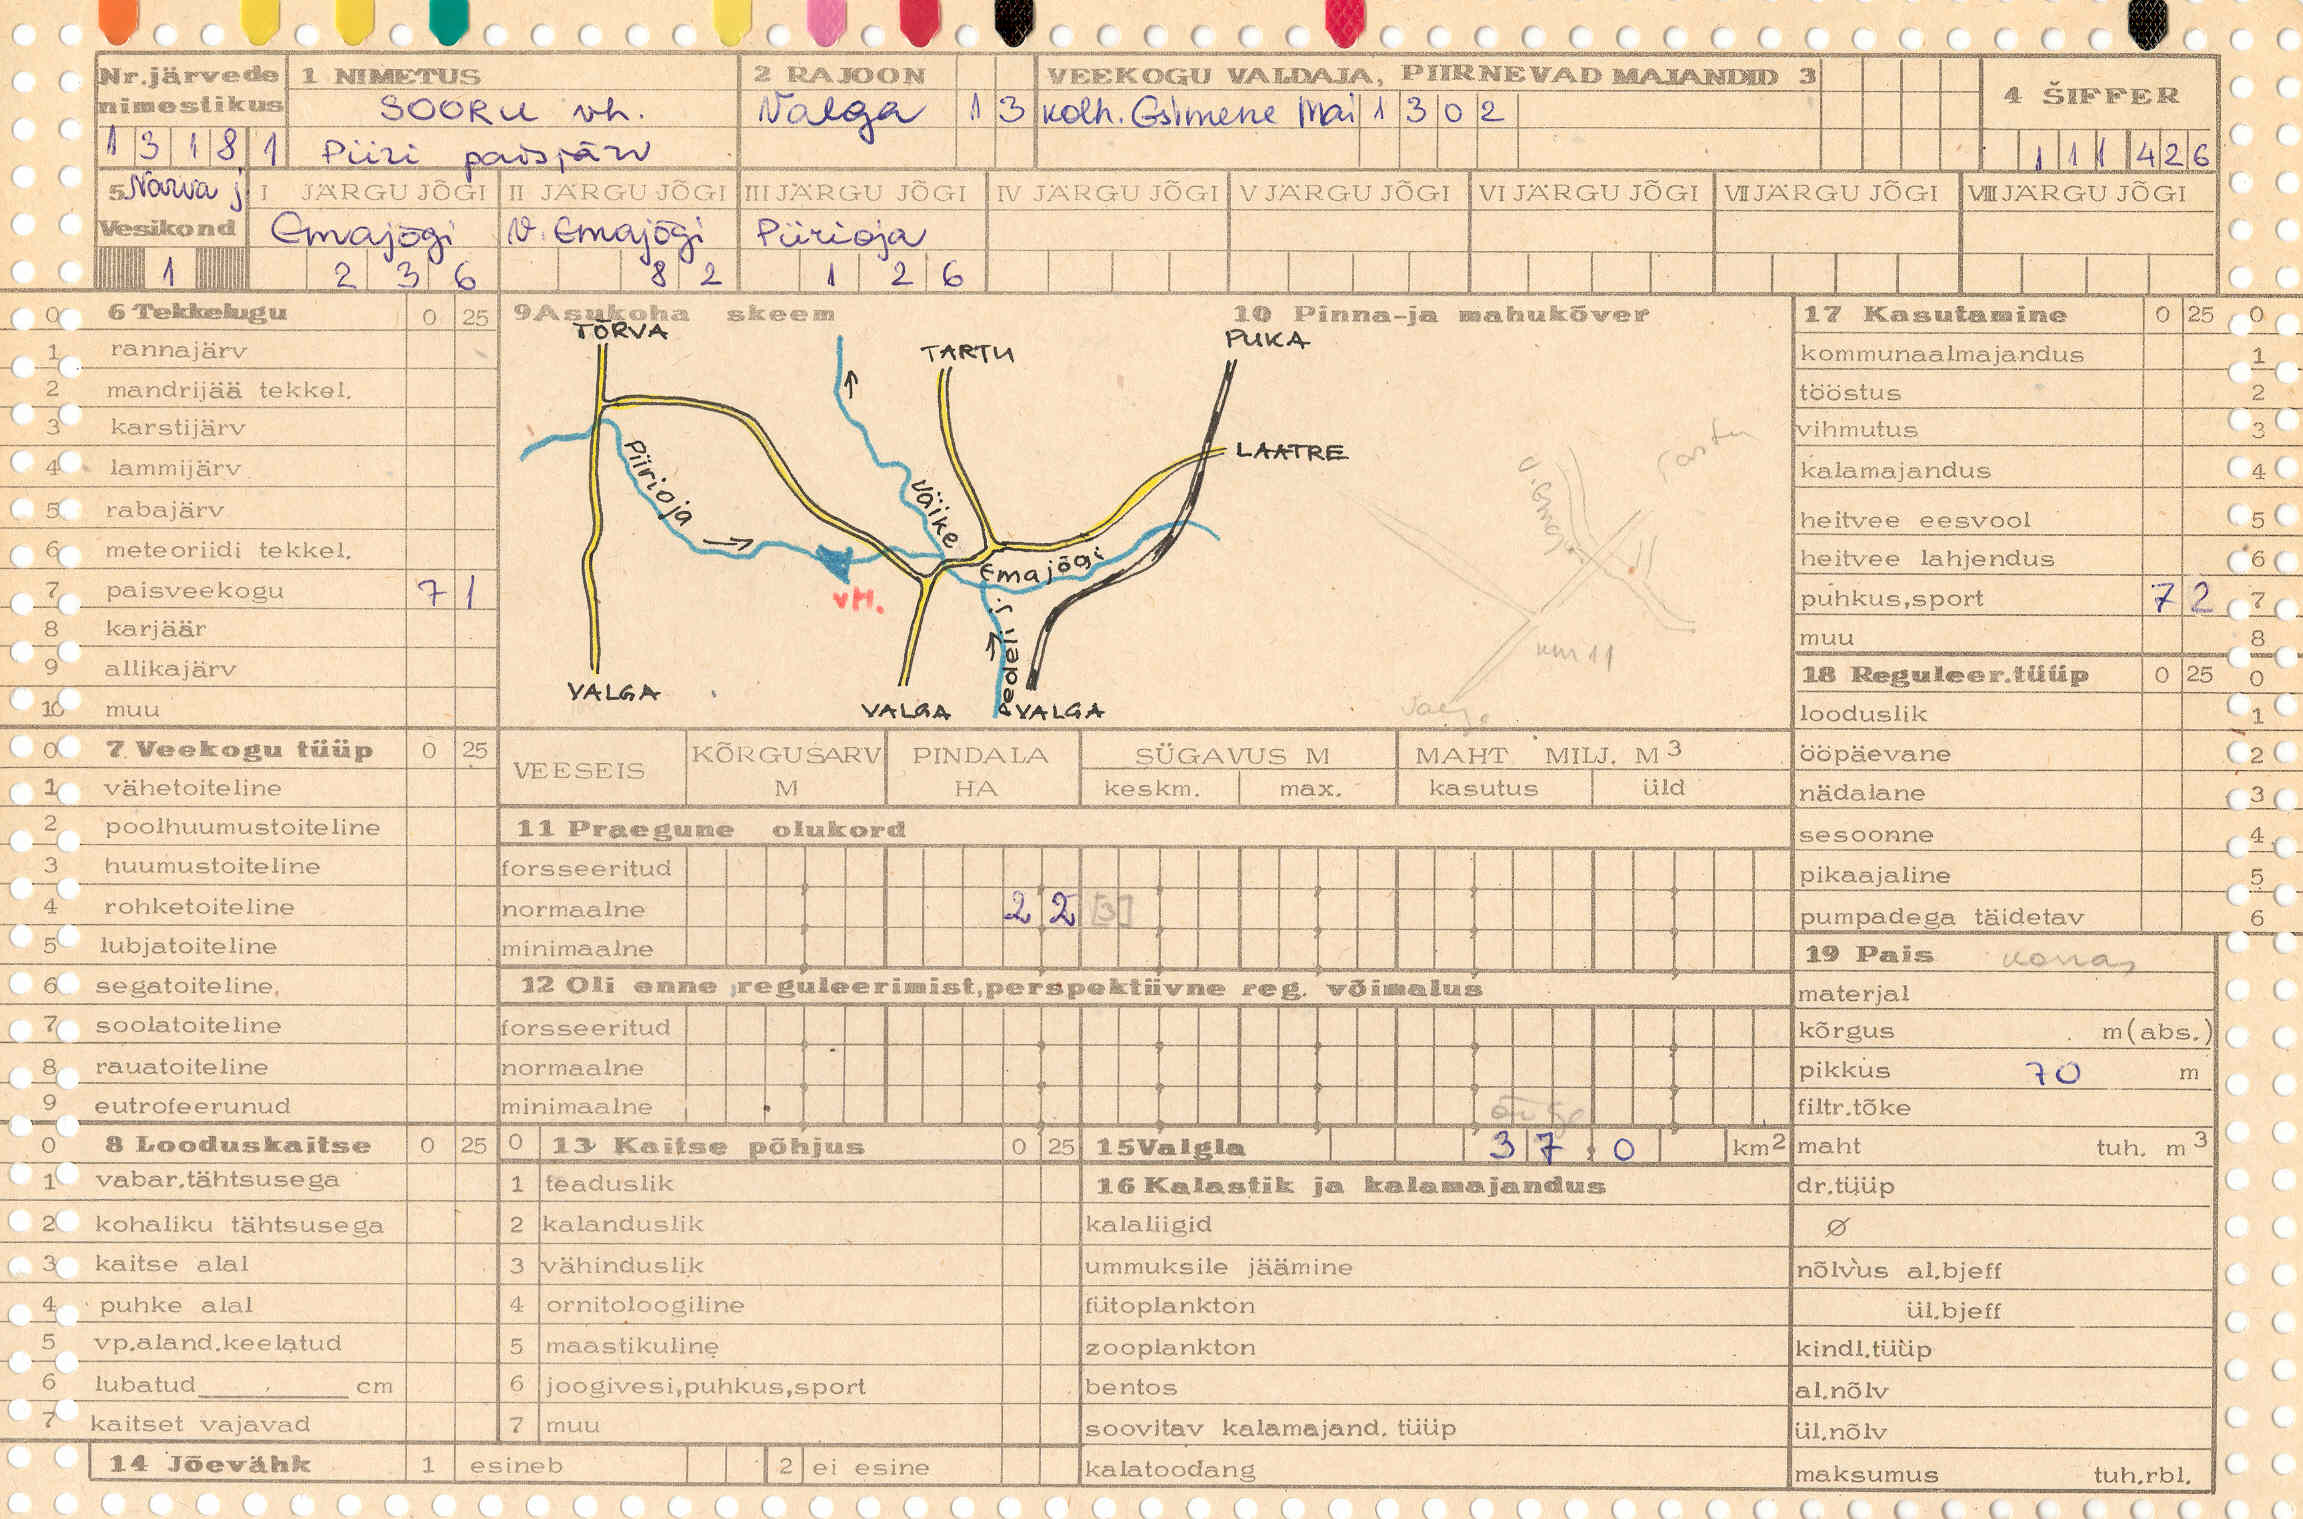 Nr.järvede nimestikus
1 3 1 8 1
1 NIMETUS
SOORU vh.
Piiri paisjärv
2 RAJOON
Valga 1 3
VEEKOGU VALDAJA, PIIRNEVAD MAJANDID 3
kolh. Esimene Mai 1 3 0 2
4 ŠIFFER
1 1 1 4 2 6
5 Narva j
Vesikond
1
I JÄRGU JÕGI
Emajõgi
2 3 6
II JÄRGU JÕGI
V. Emajõgi
8 2
III JÄRGU JÕGI
Piirioja
1 2 6
IV JÄRGU JÕGI
V JÄRGU JÕGI
VI JÄRGU JÕGI
VII JÄRGU JÕGI
VIII JÄRGU JÕGI
0 6 Tekkelugu 0 25
1 rannajärv
2 mandrijää tekkel.
3 karstijärv
4 lammijärv
5 rabajärv
6 meteoriidi tekkel.
7 paisveekogu 7 1
8 karjäär
9 allikajärv
10 muu
0 7 Veekogu tüüp 0 25
1 vähetoiteline
2 poolhuumustoiteline
3 huumustoiteline
4 rohketoiteline
5 lubjatoiteline
6 segatoiteline
7 soolatoiteline
8 rauatoiteline
9 eutrofeerunud
0 8 Looduskaitse 0 25
1 vabar.tähtsusega
2 kohaliku tähtsusega
3 kaitse alal
4 puhke alal
5 vp.aland.keelatud
6 lubatud cm
7 kaitset vajavad
9 Asukoha skeem
10 Pinna-ja mahukõver
TÕRVA
TARTU
PUKA
LAATRE
Piirioja
Väike
Emajõgi
vH.
Pedeli j.
VALGA
VALGA
VALGA
V. Emajõgi
Valga
VEESEIS
KÕRGUSARV M
PINDALA HA
SÜGAVUS M
keskm. max.
MAHT MILJ. M3
kasutus üld
11 Praegune olukord
forsseeritud
normaalne 2 2 [3]
minimaalne
12 Oli enne reguleerimist,perspektiivne reg. võimalus
forsseeritud
normaalne
minimaalne
0 13 Kaitse põhjus 0 25
1 teaduslik
2 kalanduslik
3 vähinduslik
4 ornitoloogiline
5 maastikuline
6 joogivesi,puhkus,sport
7 muu
14 Jõevähk 1 esineb 2 ei esine
15 Valgla 3 7 , 0 km2
16 Kalastik ja kalamajandus
kalaliigid
ummuksile jäämine
fütoplankton
zooplankton
bentos
soovitav kalamajand. tüüp
kalatoodang
17 Kasutamine 0 25 0
kommunaalmajandus 1
tööstus 2
vihmutus 3
kalamajandus 4
heitvee eesvool 5
heitvee lahjendus 6
puhkus,sport 7 2 7
muu 8
18 Reguleer.tüüp 0 25 0
looduslik 1
ööpäevane 2
nädalane 3
sesoonne 4
pikaajaline 5
pumpadega täidetav 6
19 Pais korras
materjal
kõrgus m(abs.)
pikkus 70 m
filtr.tõke
maht tuh. m3
dr.tüüp
Ø
nõlvus al.bjeff
ül.bjeff
kindl.tüüp
al.nõlv
ül.nõlv
maksumus tuh.rbl.